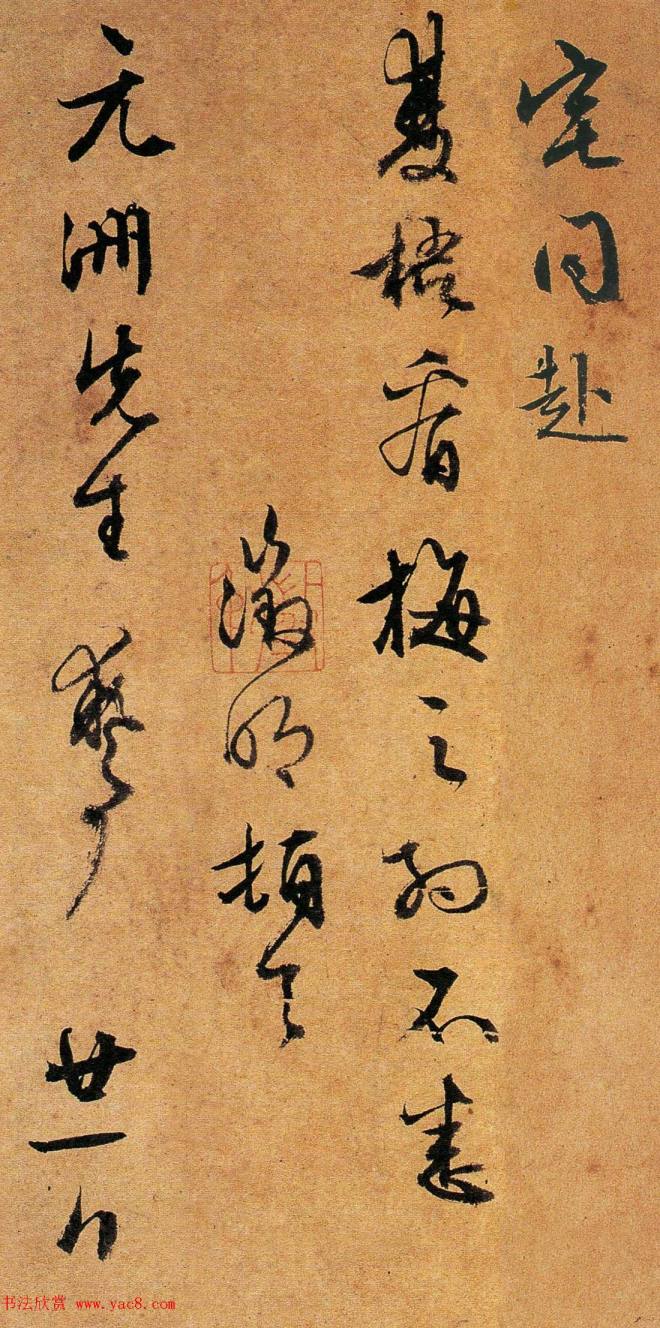 宅同赴
双梧看梅之约不悉
徵明顿首
元洲先生 廿一日
书法欣赏 www.yac8.com